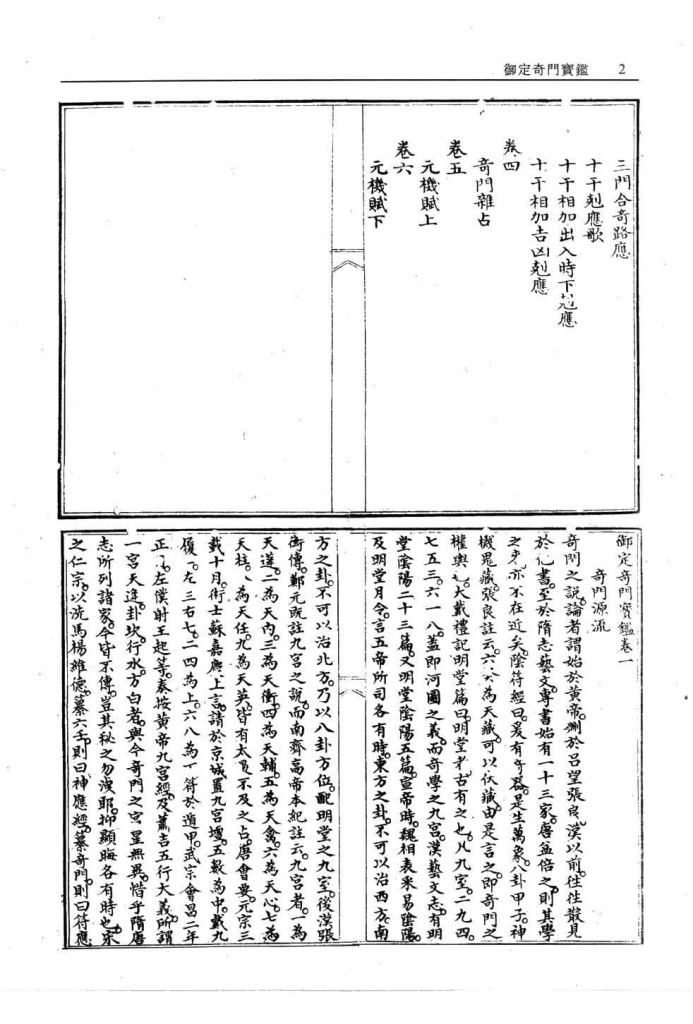 御定奇門寶鑑 2
三門合奇路應
十干剋應歌
十干相加出入時下剋應
十干相加吉凶剋應
卷四
奇門雜占
卷五
元機賦上
卷六
元機賦下
御定奇門寶鑑卷一
奇門源流
奇門之說。論者謂始於黃帝。刪於呂望張良。漢以前。往往散見
於他書。至於隋志藝文。專書始有一十三家。唐益倍之。則其學
之 亦不在近矣。陰符經曰。爰有奇器。是生萬象。八卦甲子。神
機鬼藏。張良註云。六癸為天藏可以伏藏。由是言之。即奇門之
權輿也。大戴禮記明堂篇曰。明堂者古有之也。凡九室。二九四。
七五三。六一八。蓋即河圖之義。而奇學之九宮。漢藝文志。有明
堂陰陽三十三篇。又明堂陰陽五篇。宣帝時。魏相表釆易陰陽。
及明堂月令。言五帝所司各有時。東方之卦。不可以治西方。南
方之卦。不可以治北方。乃以八卦方位。配明堂之九室。後漢張
衡傳。鄭元既註九宮之說。而南齊高帝本紀註云。九宮者。一為
天蓬。二為天內。三為天衝。四為天輔。五為天禽。六為天心。七為
天柱。八為天任。九為天英。皆有太 不及之占。唐會要。元宗三
載十月。術士蘇嘉慶上言。請於京城置九宮壇。五數為中。戴九
履一。左三右七。二四為上。六八為下。符於遁甲。武宗會昌二年
正月。左僕射王起等。奏按黃帝九宮經。及蕭吉五行大義。所謂
一宮天逢。卦坎。行水。方白者。與今奇門之宮星無異。惜乎隋唐
志所列諸家。今皆不傳。豈其秘之勿洩耶。抑顯晦各有時也。宋
之仁宗。以洗馬楊維德。纂六壬。則曰神應經。纂奇門。則曰符應